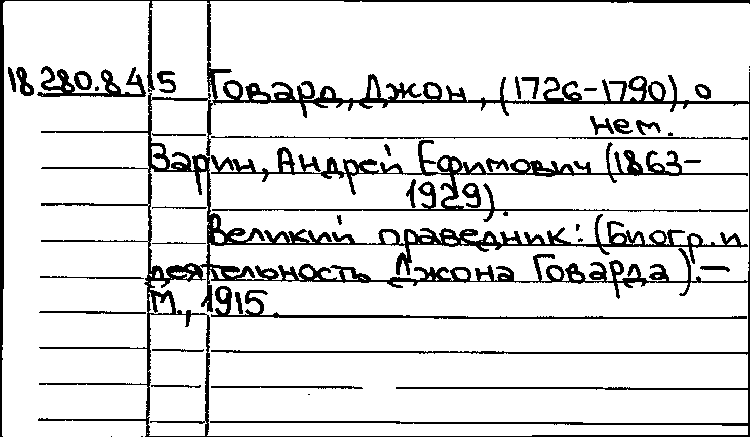 18.280.8.415 Говард, Джон, (1726-1790), о
нем.
Зарин, Андрей Ефимович (1863-
1929).
Великий праведник: (Биогр. и
деятельность Джона Говарда).—
М., 1915.